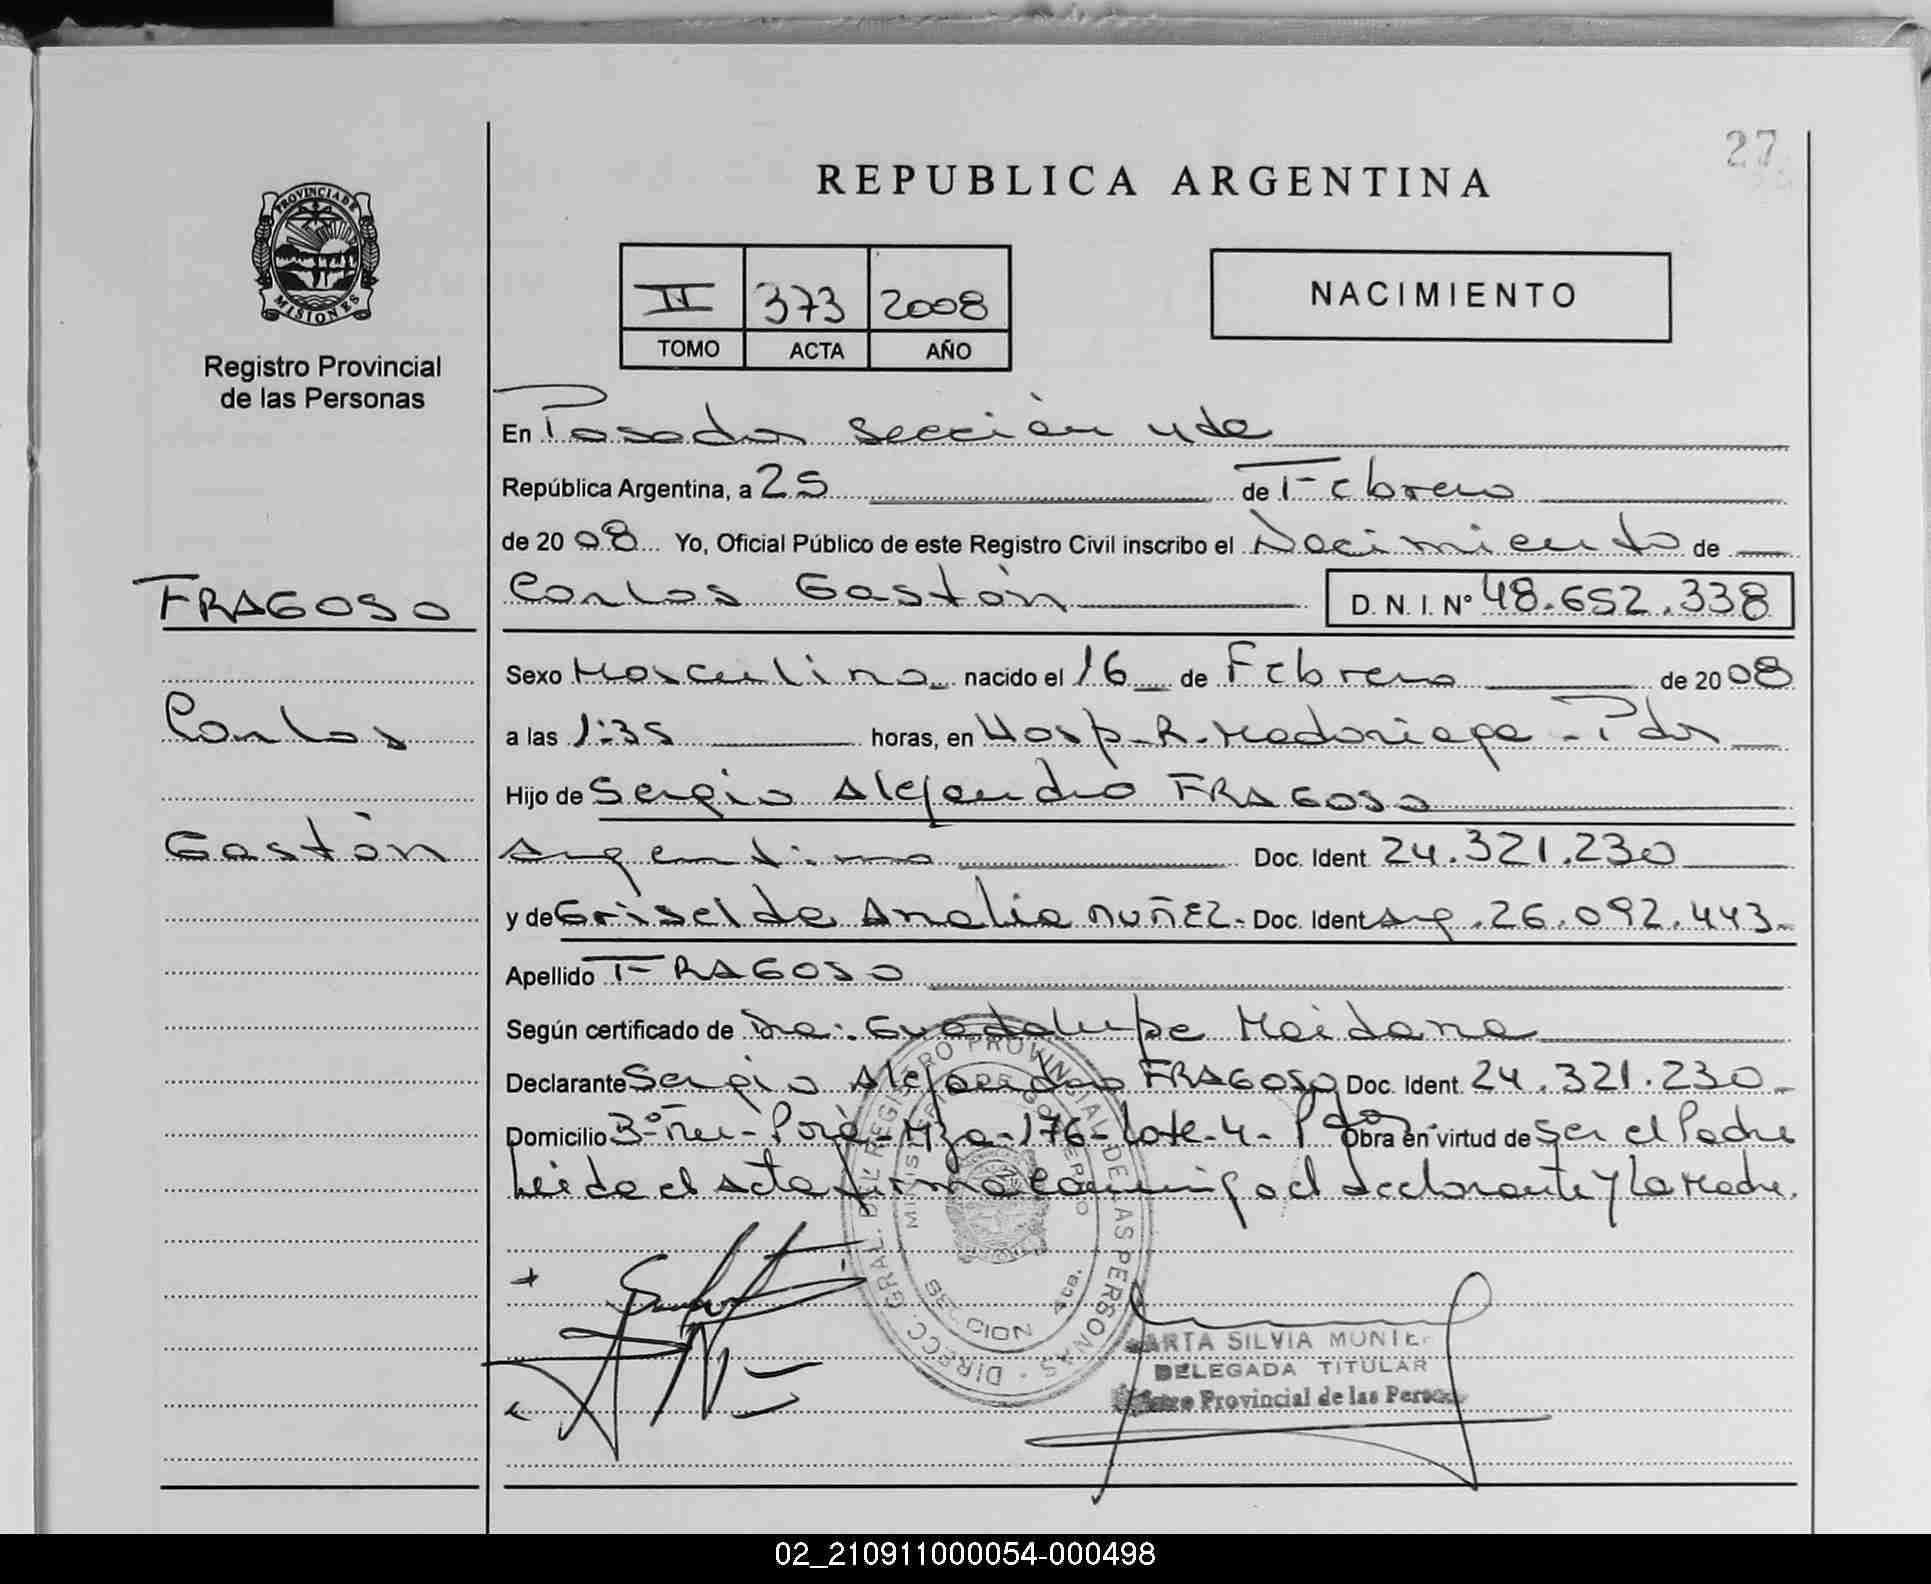 27
REPUBLICA ARGENTINA
PROVINCIA DE
MISIONES
Registro Provincial
de las Personas
II 373 2008
TOMO ACTA AÑO
NACIMIENTO
En Posadas sección 4ta
República Argentina, a 25 de Febrero
de 2008 Yo, Oficial Público de este Registro Civil inscribo el Nacimiento de
FRAGOSO
Carlos Gastón D. N. I. Nº 48.652.338
Sexo Masculino nacido el 16 de Febrero de 2008
Carlos
a las 1:35 horas, en Hosp. R. Madariaga - Pdas
Hijo de Sergio Alejandro FRAGOSO
Gastón
Argentino Doc. Ident. 24.321.230
y de Griselda Analia NUÑEZ - Doc. Ident Arg. 26.092.443.
Apellido FRAGOSO
Según certificado de Dra: Guadalupe Maidana
Declarante Sergio Alejandro FRAGOSO Doc. Ident. 24.321.230
Domicilio Bº Ñu - Porá - Mza - 176 - Lote - 4 - Pdas. Obra en virtud de ser el Padre
Leida el acta firma conmigo el declarante y la Madre.
DIRECC. GRAL. DEL REGISTRO PROVINCIAL DE LAS PERSONAS
MINISTERIO DE GOBIERNO
ARTA SILVIA MUNIE
DELEGADA TITULAR
Provincial de las Perso
02_210911000054-000498